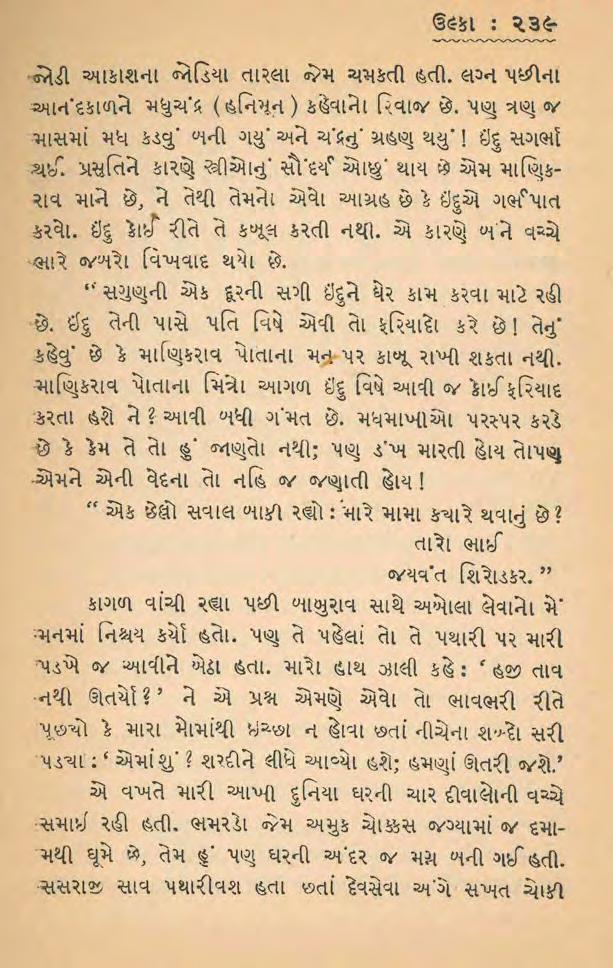 ઉલ્કા : ૨૩૯
જોડી આકાશના જોડિયા તારલા જેમ ચમકતી હતી. લગ્ન પછીના
આનંદકાળને મધુચંદ્ર (હનિમૂન) કહેવાનો રિવાજ છે. પણ ત્રણ જ
માસમાં મધ કડવું બની ગયું અને ચંદ્રનું ગ્રહણ થયું! ઇંદુ સગર્ભા
થઈ. પ્રસૂતિને કારણે સ્ત્રીઓનું સૌંદર્ય ઓછું થાય છે એમ માણિક-
રાવ માને છે, ને તેથી તેમનો એવો આગ્રહ છે કે ઇંદુએ ગર્ભપાત
કરવો. ઇંદુ કોઈ રીતે તે કબૂલ કરતી નથી. એ કારણે બંને વચ્ચે
ભારે જબરો વિખવાદ થયો છે.
“ સગુણની એક દૂરની સગી ઇંદુને ઘેર કામ કરવા માટે રહી
છે. ઇંદુ તેની પાસે પતિ વિષે એવી તો ફરિયાદો કરે છે! તેનું
કહેવું છે કે માણિકરાવ પોતાના મન પર કાબૂ રાખી શકતા નથી.
માણિકરાવ પોતાના મિત્રો આગળ ઇંદુ વિષે આવી જ કોઈ ફરિયાદ
કરતા હશે ને? આવી બધી ગંમત છે. મધમાખીઓ પરસ્પર કરડે
છે કે કેમ તે તો હું જાણતો નથી; પણ ડંખ મારતી હોય તોપણ
એમને એની વેદના તો નહિ જ જણાતી હોય!
“ એક છેલ્લો સવાલ બાકી રહ્યો : મારે મામા ક્યારે થવાનું છે?
તારો ભાઈ
જયવંત શિરોડકર. ”
કાગળ વાંચી રહ્યા પછી બાબુરાવ સાથે અબોલા લેવાનો મેં
મનમાં નિશ્ચય કર્યો હતો. પણ તે પહેલાં તો તે પથારી પર મારી
પડખે જ આવીને બેઠા હતા. મારો હાથ ઝાલી કહે : ‘ હજી તાવ
નથી ઊતર્યો? ’ ને એ પ્રશ્ન એમણે એવો તો ભાવભરી રીતે
પૂછ્યો કે મારા મોંમાંથી ઇચ્છા ન હોવા છતાં નીચેના શબ્દો સરી
પડ્યા : ‘ એમાં શું? શરદીને લીધે આવ્યો હશે; હમણાં ઊતરી જશે.’
એ વખતે મારી આખી દુનિયા ઘરની ચાર દીવાલોની વચ્ચે
સમાઈ રહી હતી. ભમરડો જેમ અમુક ચોક્કસ જગ્યામાં જ દમા-
મથી ઘૂમે છે, તેમ હું પણ ઘરની અંદર જ મગ્ન બની ગઈ હતી.
સસરાજી સાવ પથારીવશ હતા છતાં દેવસેવા અંગે સખત ચોકી